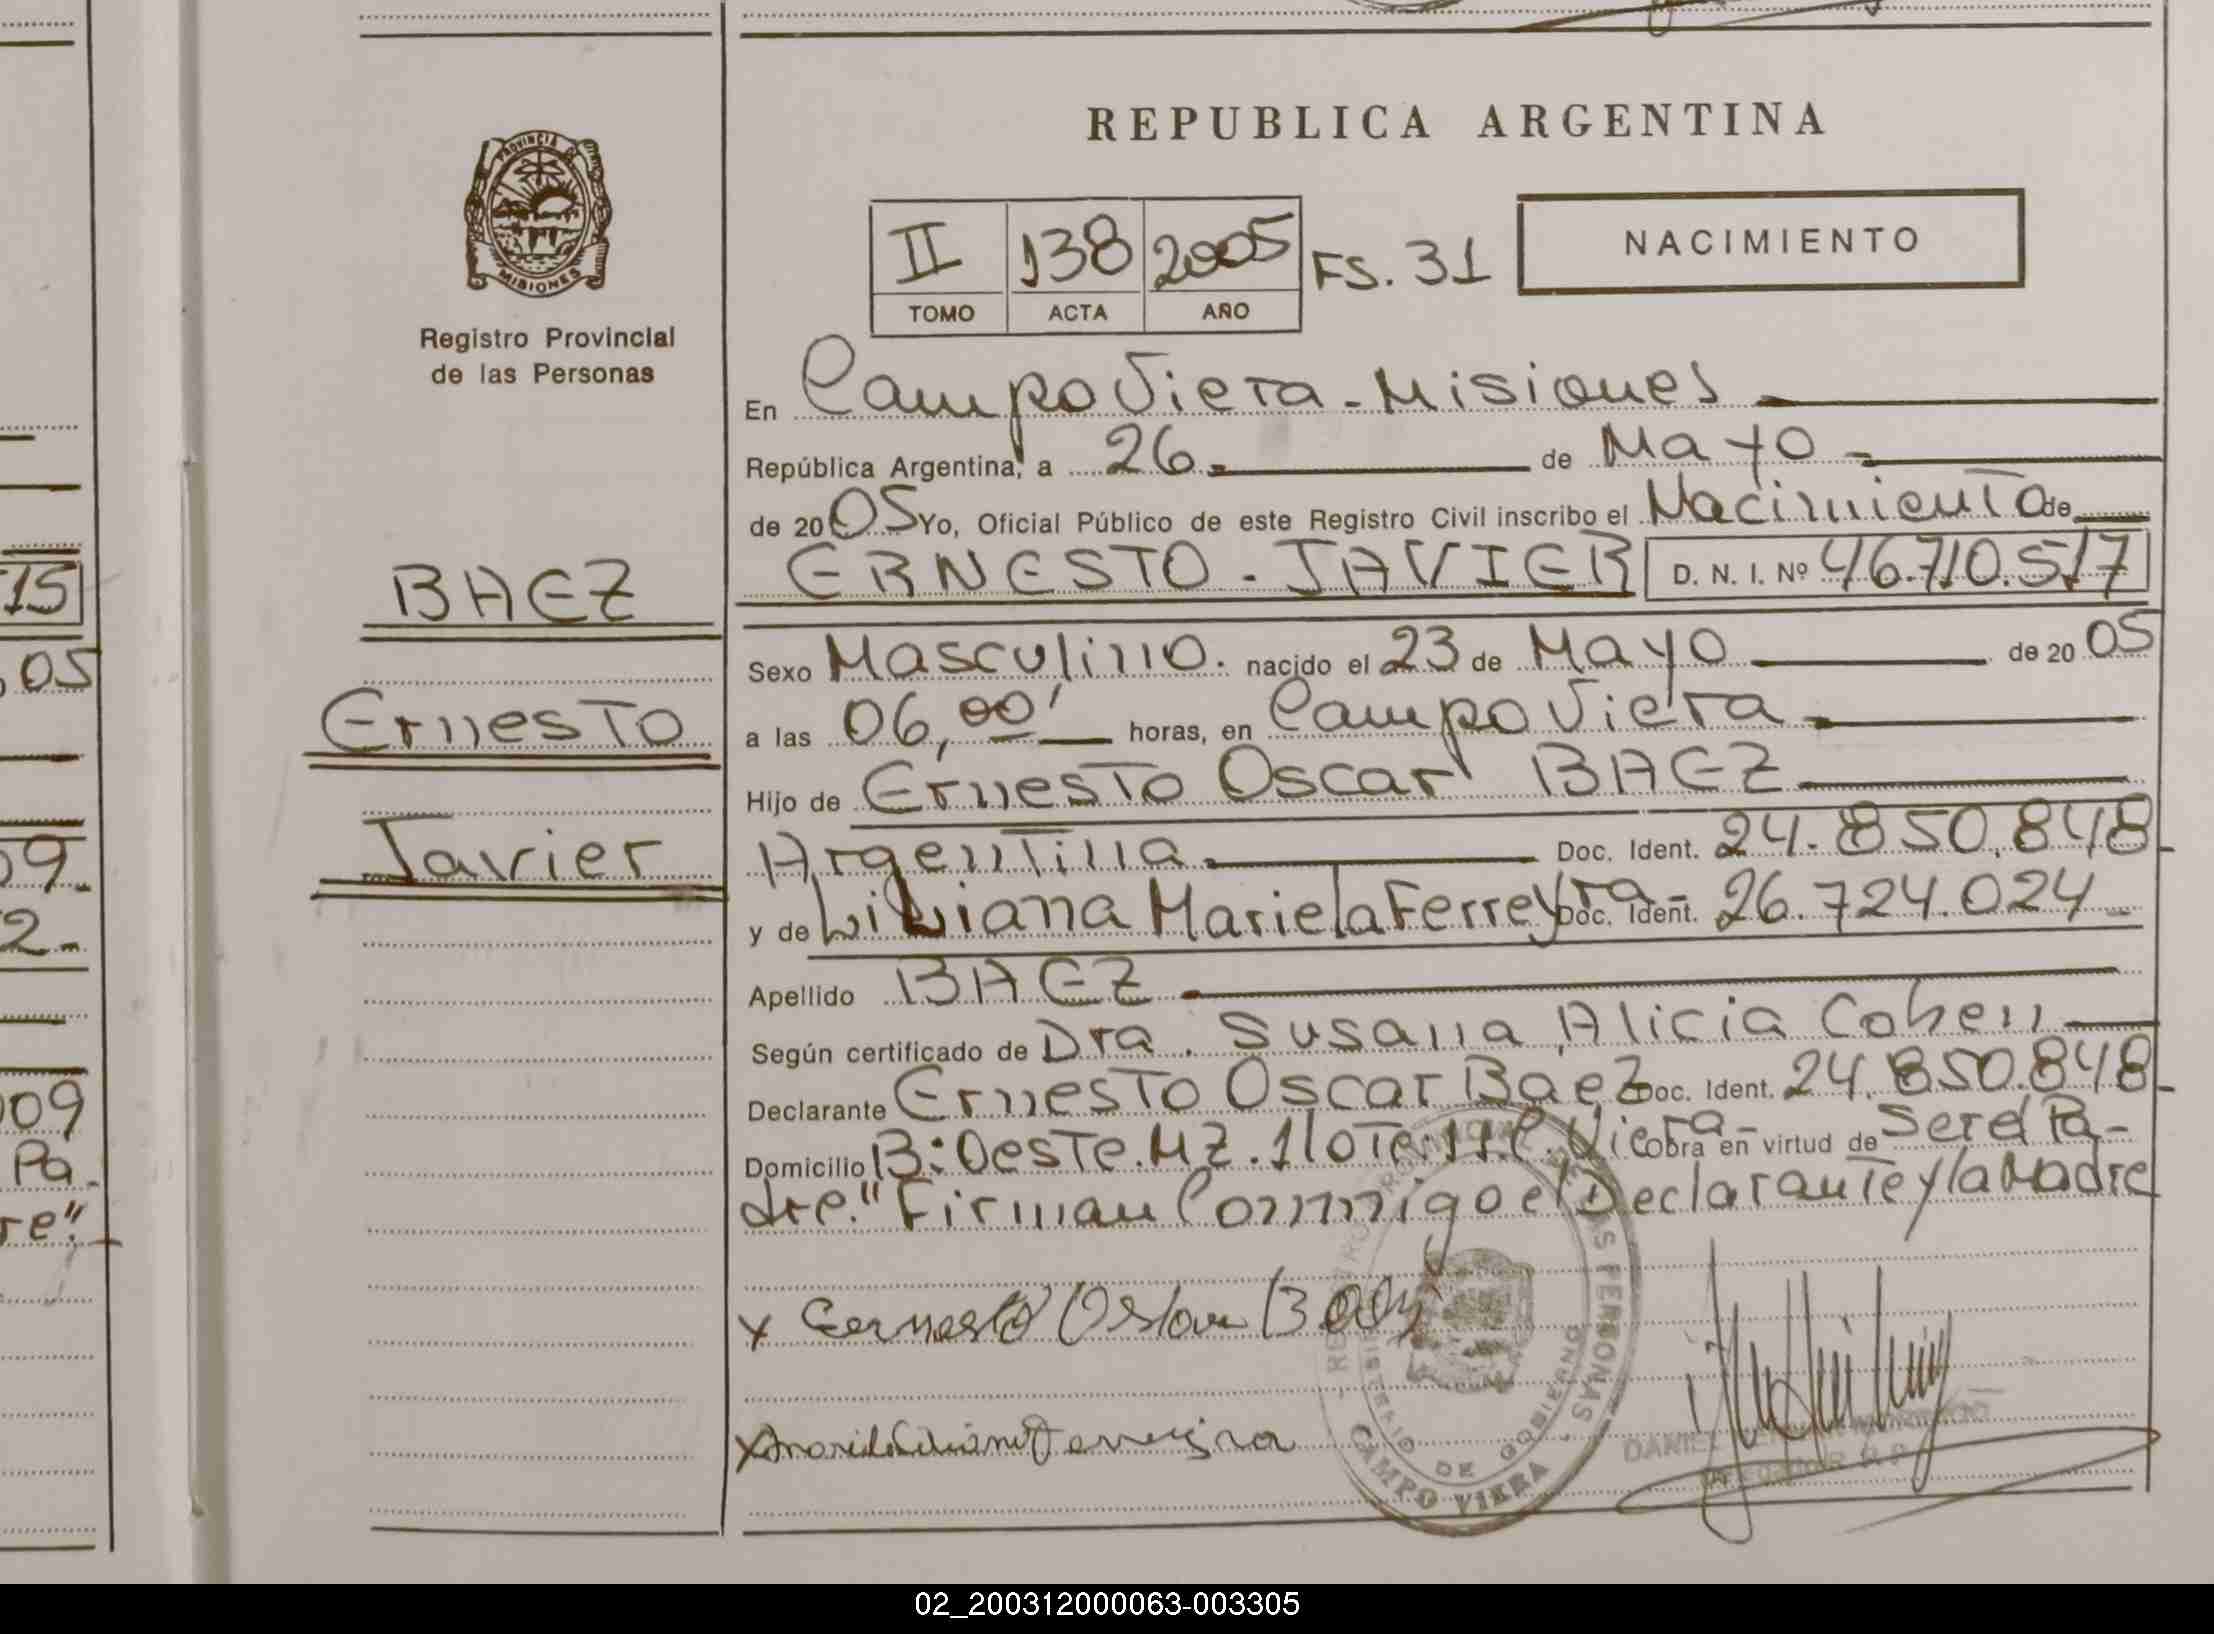 REPUBLICA ARGENTINA
PROVINCIA DE
MISIONES
Registro Provincial
de las Personas
II 138 2005 FS. 31
TOMO ACTA AÑO
NACIMIENTO
En Campo Viera - Misiones
República Argentina, a 26 de Mayo
de 2005 Yo, Oficial Público de este Registro Civil inscribo el Nacimiento de
BAEZ
ERNESTO - JAVIER D. N. I. Nº 46.710.517
Sexo Masculino. nacido el 23 de Mayo de 2005
Ernesto
a las 06,00' horas, en Campo Viera
Hijo de Ernesto Oscar BAEZ
Javier
Argentina Doc. Ident. 24.850.848
y de Liliana Mariela Ferreyra - Doc. Ident. 26.724.024
Apellido BAEZ
Según certificado de Dra. Susana Alicia Cohen
Declarante Ernesto Oscar Baez Doc. Ident. 24.850.848
Domicilio B: Oeste. MZ. 1 lote: 11 C. Viera - Obra en virtud de Ser el Pa-
dre." Firman Conmigo el Declarante y la Madre
x Ernesto Oscar Baez
REGISTRO PROVINCIAL DE LAS PERSONAS
MINISTERIO DE GOBIERNO
CAMPO VIERA
DANIEL
15
05
09
2-
009
Pa-
re"
02_200312000063-003305